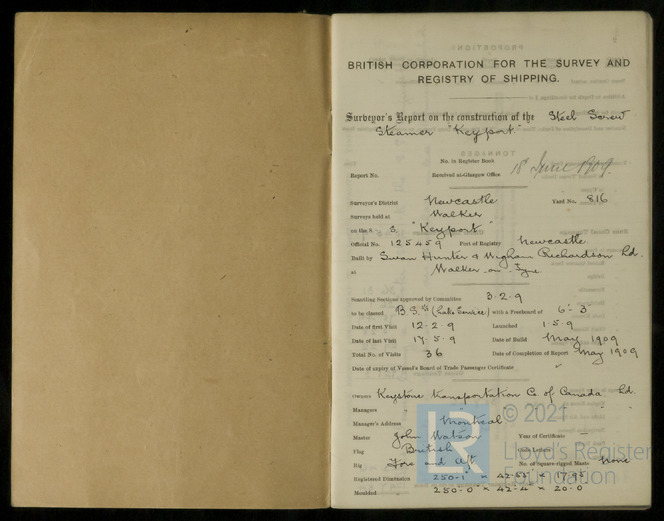 BRITISH CORPORATION FOR THE SURVEY AND
REGISTRY OF SHIPPING.
Surveyor's Report on the construction of the Steel Screw
Steamer "Keyport"
No. in Register Book
Report No. Received at Glasgow Office 18 June 1909.
Surveyor's District Newcastle Yard No. 816
Surveys held at Walker
on the S S "Keyport"
Official No. 125459 Port of Registry Newcastle
Built by Swan Hunter & Wigham Richardson Ld.
at Walker-on-Tyne
Scantling Sections approved by Committee 3.2.9
to be classed B.S.* (Lake Service) with a Freeboard of 6'-3"
Date of first Visit 12.2.9 Launched 1.5.9
Date of last Visit 17.5.9 Date of Build May 1909
Total No. of Visits 36 Date of Completion of Report May 1909
Date of expiry of Vessel's Board of Trade Passenger Certificate
Owners Keystone Transportation Co. of Canada. Ld.
Managers " " "
Manager's Address Montreal
Master John Watson Year of Certificate —
Flag British Code Letters
Rig Fore and Aft No. of Square-rigged Masts None
Registered Dimension 250.1' × 42.55' × 17.95'
Moulded 250-0" × 42-4" × 20-0
© 2021
LR
Lloyd's Register
Foundation